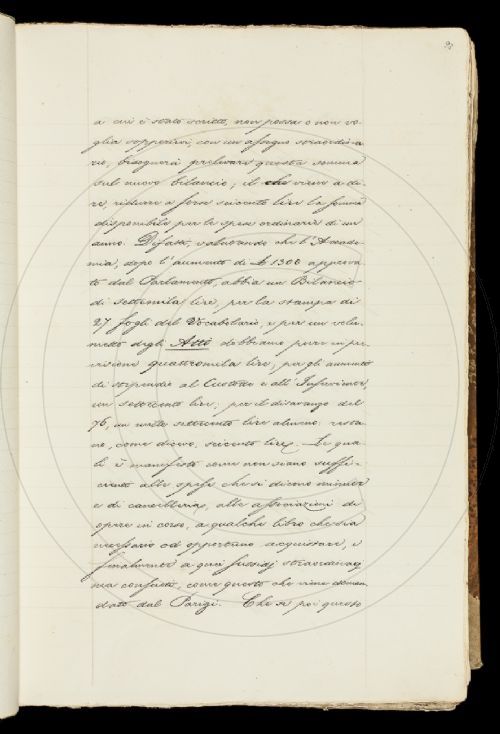 a cui è stato scritto, non possa o non vo-
glia sopperirvi con un assegno straordina-
rio, bisognerà prelevare questa somma
sul nuovo bilancio; il che viene a di-
re, ridurre a forse seicento lire la somma
disponibile per le spese ordinarie di un
anno. Difatti, valutando che l'Accade-
mia, dopo l'aumento di £ 1300 approva-
to dal Parlamento, abbia un Bilancio
di settemila lire, per la stampa di
27 fogli del Vocabolario, e per un volu-
metto degli Atti debbano pure im-
quattromila lire; per gli aumenti
di stipendio al Custode e all' Inserviente,
un settecento lire; per il disavanzo del
76, un mille settecento lire almeno: resta-
no, come dicevo, seicento lire. Le qua-
li è manifesto come non siano suffi-
cienti alle spese che si dicono minute
e di cancelleria, alle associazioni di
opere in corso, a qualche libro che sia
necessario od opportuno acquistare, e
finalmente a quei sussidj straordinarj
ma consueti, come questo che viene doman-
dato dal Parigi. Che se poi questo